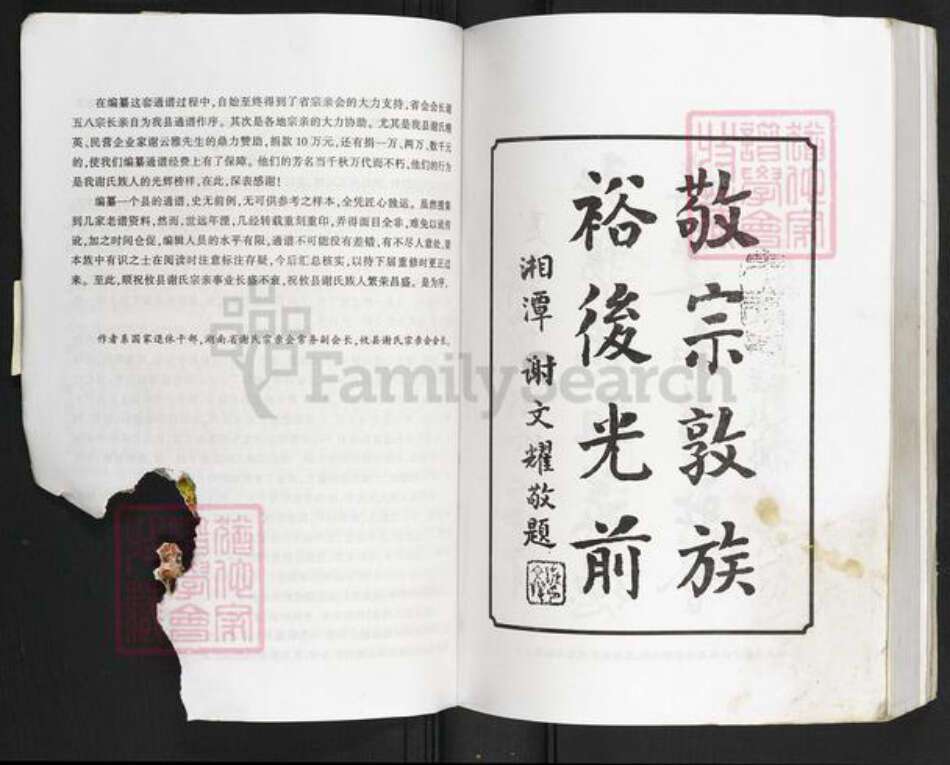 在编纂这套通谱过程中,自始至终得到了省宗亲会的大力支持,省会会长谢
五八宗长亲自为我县通谱作序。其次是各地宗亲的大力协助。尤其是我县谢氏精
英、民营企业家谢云雅先生的鼎力赞助,捐款10万元,还有捐一万、两万、数千元
的,使我们编纂通谱经费上有了保障。他们的芳名当千秋万代而不朽,他们的行为
是我谢氏族人的光辉榜样,在此,深表感谢!
编纂一个县的通谱,史无前例,无可供参考之样本,全凭匠心独运。虽然搜集
到几家老谱资料,然而,世远年湮,几经转载重刻重印,弄得面目全非,难免以讹传
讹,加之时间仓促,编辑人员的水平有限,通谱不可能没有差错,有不尽人意处,望
本族中有识之士在阅读时注意标注存疑,今后汇总核实,以待下届重修时更正过
来。至此,顺祝攸县谢氏宗亲事业长盛不衰,祝攸县谢氏族人繁荣昌盛。是为序。
作者系国家退休干部,湖南省谢氏宗亲会常务副会长,攸县谢氏宗亲会会长。
敬宗敦族
裕後光前
湘潭 谢文耀敬题
FamilySearch